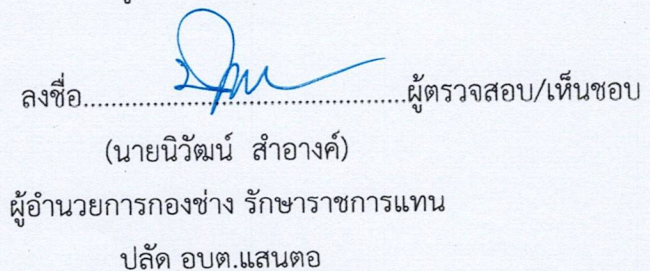 ลงชื่อ........................................ผู้ตรวจสอบ/เห็นชอบ
(นายนิวัฒน์ สำอางค์)
ผู้อำนวยการกองช่าง รักษาราชการแทน
ปลัด อบต.แสนตอ